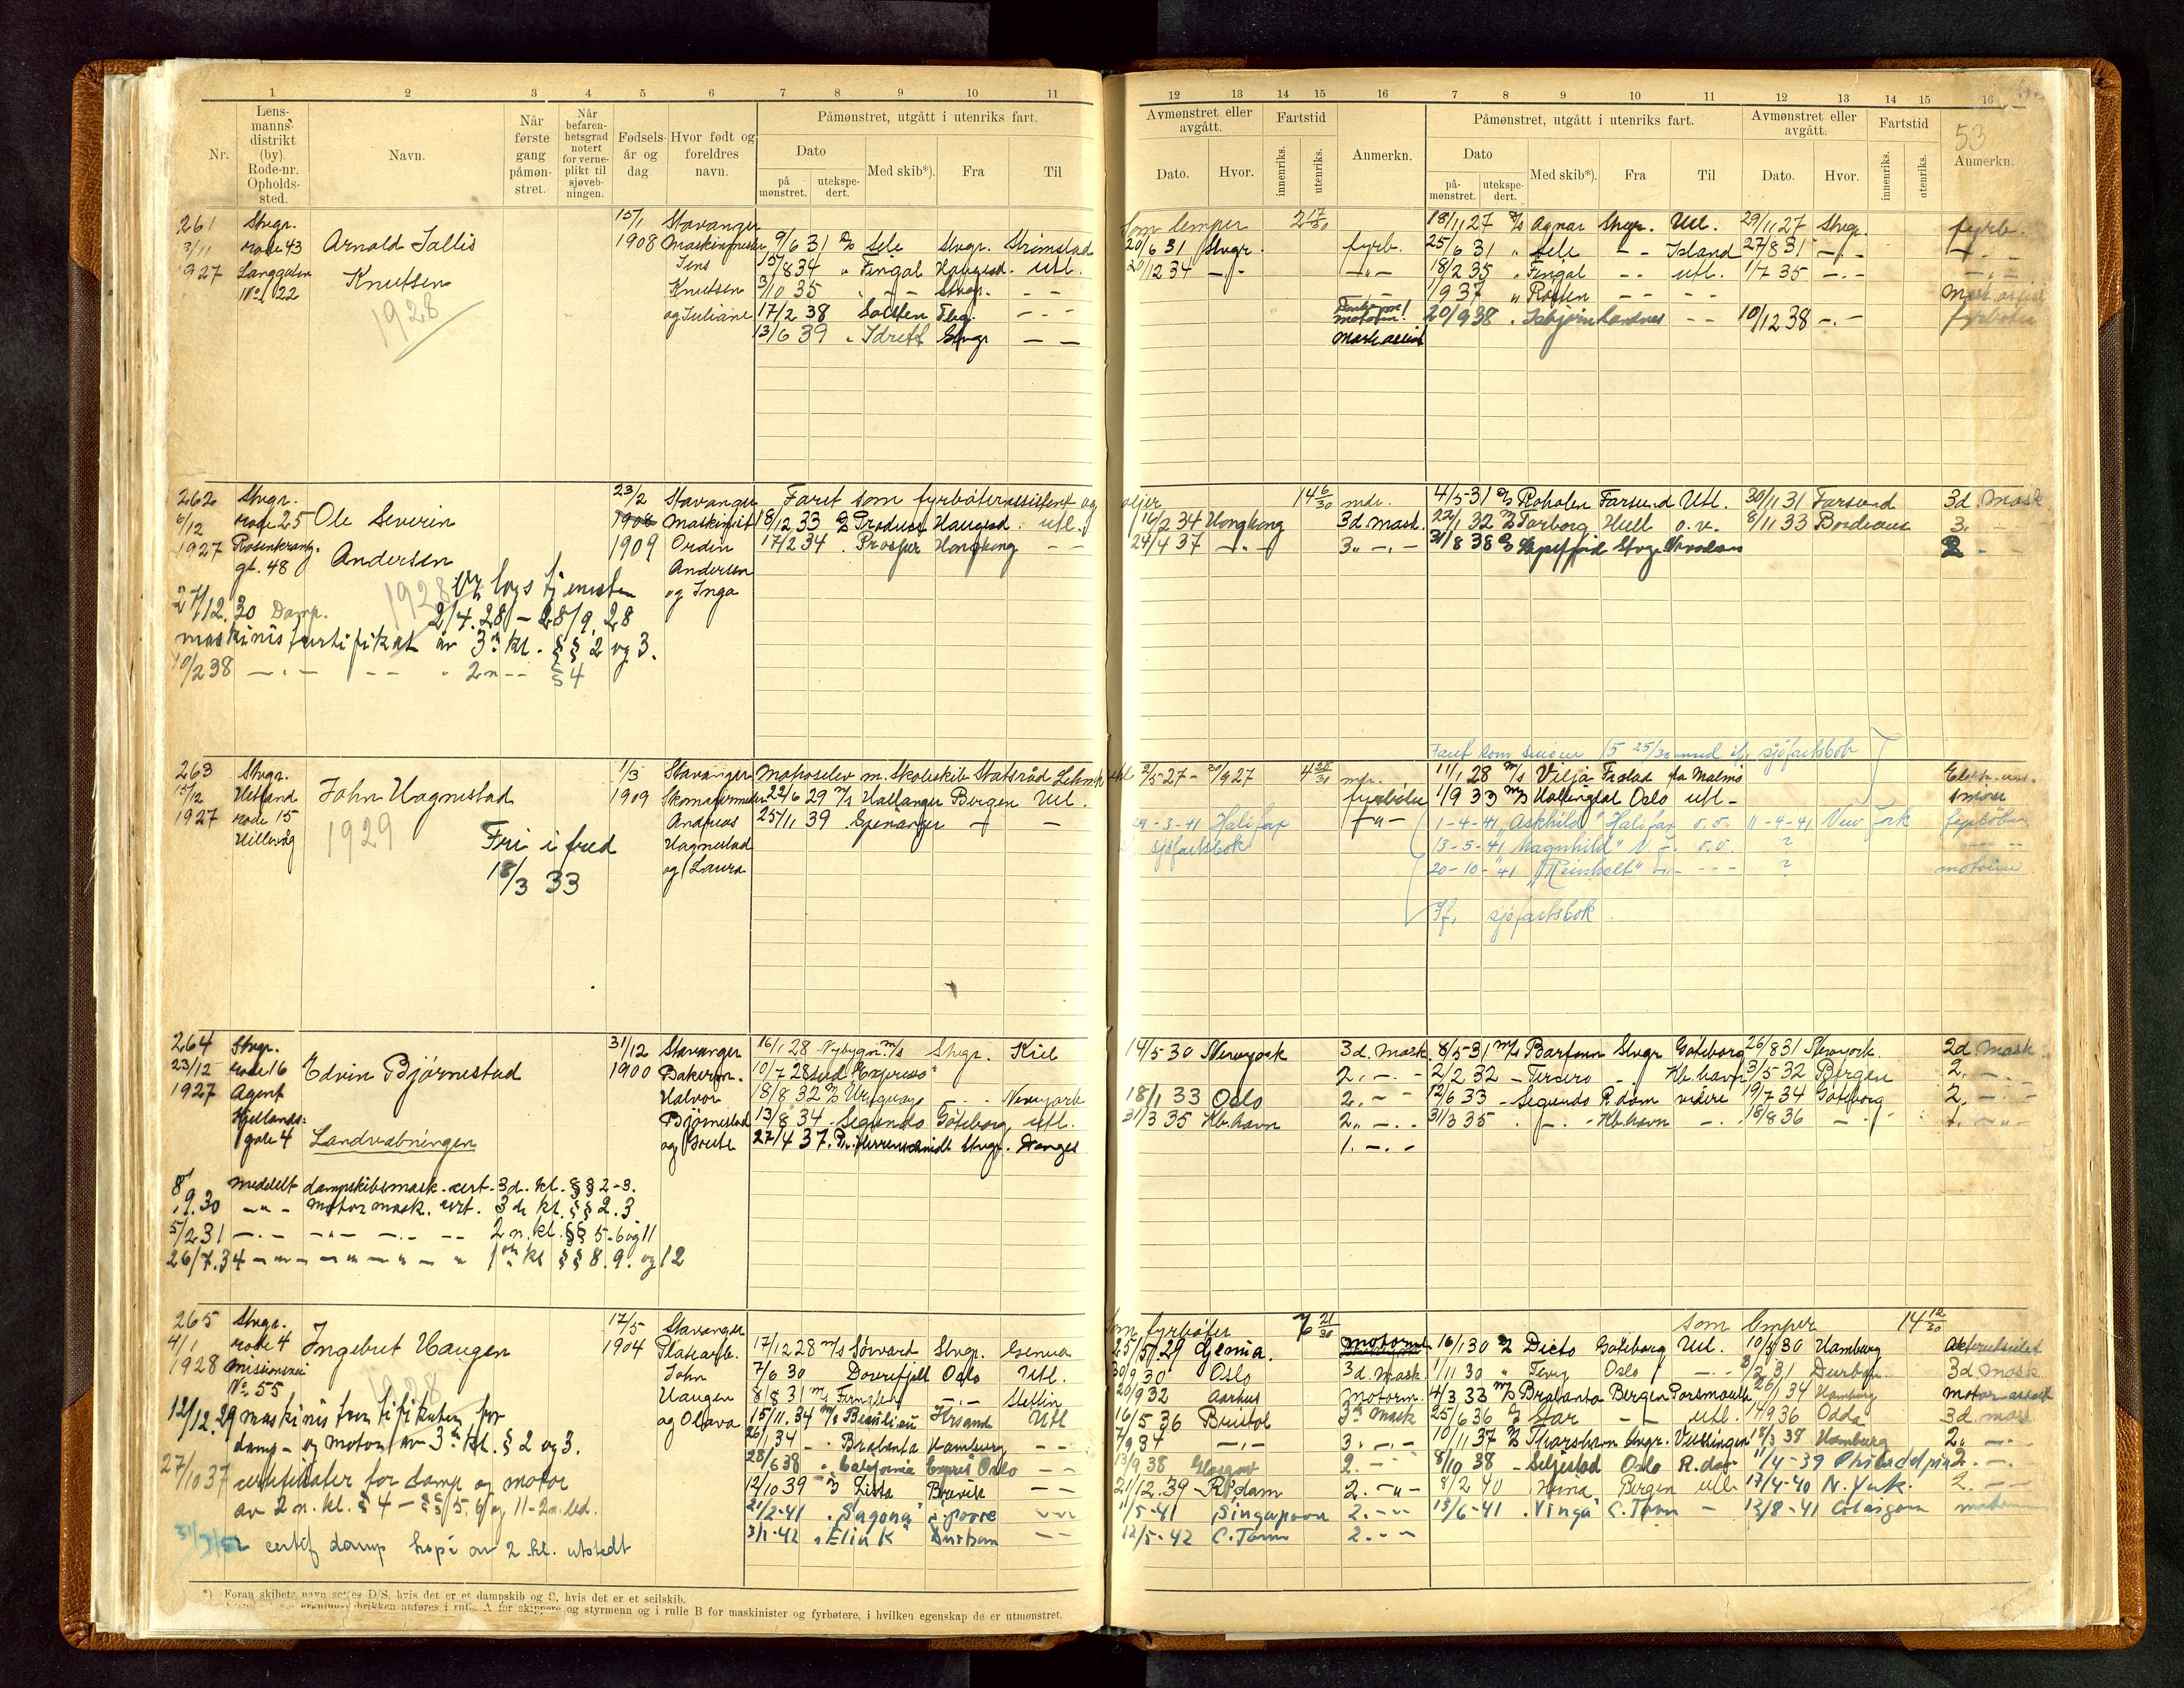 1 2 3 4 5 6 7 8 9 10 11
Nr. Lensmannsdistrikt (by). Rode-nr. Opholdssted. Navn. Når første gang påmønstret. Når befarenhetsgrad notert for verneplikt til sjøvebningen. Fødselsår og dag Hvor født og foreldres navn. Påmønstret, utgått i utenriks fart.
Dato på mønstret. utekspedert. Med skib*). Fra Til
12 13 14 15 16 7 8 9 10 11 12 13 14 15 16
Avmønstret eller avgått. Fartstid Påmønstret, utgått i utenriks fart. Avmønstret eller avgått. Fartstid 53
Dato. Hvor. innenriks. utenriks. Anmerkn. Dato påmønstret. utekspedert. Med skib*). Fra Til Dato. Hvor. innenriks. utenriks. Anmerkn.
261 Stvgr. 15/1 Stavanger
3/11 rode 43 Arnold Sallis 1908 Maskinpusser 9/6 31 Sele Stvgr. Strömstad
1927 Langgaten Knutsen Jens 834 " Fingal Haugesd. Utl.
No 22 Knutsen 3/10 35 Stvgr. - -
1928 og Juliane 17/2 38 Solsten Tbg. - -
13/6 39 " Idrett Stvgr - -
Som lemper 2 17/30 18/11 27 Agnar Stvgr. Utl. 29/11 27 Stvgr. fyrb.
20/6 31 Stvgr. fyrb. 25/6 31 " Sele - - Island 27/8 31 - " -
20/12 34 - " - - " - 18/2 35 " Fingal - - utl. 1/7 35 - " -
1937 " Røsten - - - -
20/9 38 " Isbjørn - - 10/12 38 - " - fyrbøter
262 Stvgr. 23/2 Stavanger Faret som fyrbøterassistent og oljer 14 6/30 mdr.
6/12 rode 25 Ole Severin 1908 Maskinist 18/12 33 Producer Haugesd. utl.
1927 Rosenkrantz- Andersen 1909 Ordin 17/2 34 " Prosper Hongkong - -
gt. 48 Andersen
1928 og Inga
2/4.28 - 28/9.28
27/12.30 Damp.
maskinistsertifikat av 3die kl. §§ 2 og 3.
10/2 38 - " - - - " 2n - - § 4
4/5-31 Roholm Farsund Utl. 30/11 31 Farsund 3d. Mask
16/2 34 Hongkong 3d mask. 22/1 32 Torborg Hull o.v. 8/11 33 Bordeaux 3. - -
24/4 37 - " - 3" - " - 31/8 38 Stvgr. 2 " -
263 Stvgr. 1/3 Stavanger Matroselev m. Skoleskib Statsråd Lehmkuhl 2/5-27 - 30/9 27 mdr.
15/12 Hetland John Hagnestad 1909 Skomakermester 22/6 29 m/s Hallanger Bergen Utl. fyrbøter
1927 rode 15 Andreas 25/11 39 Spinanger - -
Hillevåg 1929 Fri i fred Hagnestad
18/3 33 og Laura
Faret som smører 15 25/30 mnd. if. sjøfartsbok
11/1 28 m/s Vilja Fr.stad fra Malmö
1/9 33 m/s Hallingdal Oslo utl - smører
29-3-41 Halifax 1-4-41 "Askhild" Halifax o.v. 11-4-41 New York fyrbøter
sjøfartsbok 13-5-41 "Magnhild" N.Y. o.v. ?
20-10-41 "Reinholt" - - - ? motormn
Jf. sjøfartsbok
264 Stvgr. 31/12 Stavanger 16/1 28 Nybygn. m/s Stvgr. Kiel
23/12 rode 16 Edvin Bjørnestad 1900 Bakerm. 10/7 28 sud Expreso"
1927 Agent Halvor 18/8 32 Uruguay - " - Newyork
Kjellands- Bjørnestad 13/8 34 " Segundo Göteborg utl.
gate 4 Landvabningen og Grete 27/4 37 Stvgr.
8/9.30 Meddelt dampskibsmask. cert. 3d. kl. §§ 2-3.
- " - motor mask. cert. 3de kl. §§ 2.3
5/2 31 - " - - " - - " - - - 2n. kl. §§ 5-6 og 11
26/7.34 - " - - " - " - " 1ste kl §§ 8. 9. og 12
14/5-30 Newyork 3d. Mask 8/5-31 m/s Barfonn Stvgr Göteborg 26/8 31 Newyork. 2d. Mask.
2. - " - 2/2 32 - Tercero - " Kb.havn 3/5 32 Bergen 2. - " -
18/1 33 Oslo 2. - " - 12/6 33 - Segundo R.dam videre 19/7 34 Göteborg 2. - " -
31/3 35 Kb.havn 2. - " - 31/3 35 " - " - Kb.havn - " 18/8 36 - " - 1. - " -
1. - " -
265 Stvgr. 17/5 Stavanger
4/1 rode 4 Ingebret Haugen 1904 Platearb. 17/12 28 m/s Sørvard Stvgr. Genua
1928 Misionsvei John 7/6 30 Dovrefjell Oslo Utl.
No 55 Haugen 8/8 31 m/s Fernglen - " - Stettin
1928 og Olava 15/11.34 m/s Beaulieu Utl
12/12.29 maskinistsertifikater for 26/1 34 - " Brabanta Hamburg - -
damp- og motor av 3die kl. § 2 og 3. 28/6 38 " California Expres Oslo - -
27/10 37 certifikater for damp og motor 12/10 39 Lista Brevik - -
av 2n. kl. § 4 - §§ 5, 6 og 11 - 2n. led. 21/2-41 " Sagona " S.pore
31/7/52 certif damp kopi av 2. kl. utstedt 3/1-42 " Elin K Durban - -
Som fyrbøter 7 21/30 som lemper 14 12/30
25/5 29 Genua. 16/1 30 Dicto Göteborg Utl. 10/5 30 Hamburg
30/9 30 Oslo 3d. Mask 1/11 30 " Teng Oslo - " - 3/2 31 Durban 3d. mask
20/9 32 Aarhus motorm. 4/3 33 m/s Brabanta Bergen Porsmouth 20/1 34 Hamburg motor-assist
16/5 36 Bristol 3die Mask 25/6 36 Star - - utl. 14/9 36 Odda 3d. mask
7/9 34 - " - 3. - " - 10/11 37 Thorshavn Stvgr. Vlissingen 18/3 38 Hamburg 2. - " -
13/9 38 Glasgow 2. - " - 8/10 38 - Seljestad Oslo R.dam 11/4-39 Philadelpia 2. - " -
21/12.39 - R.dam 2. - " - 8/2 40 Bergen utl. 17/4-40 N. York. 2. - -
11/5-41 Singapore 2. - " - 13/6-41 " Vinga C. Town - 13/8-41 Glasgow
12/5-42 C. Town 2. - " -
*) Foran skibets navn settes D/S, hvis det er et dampskib og S, hvis det er et seilskib.
anføres i rulle A for skippere og styrmenn og i rulle B for maskinister og fyrbøtere, i hvilken egenskap de er utmønstret.